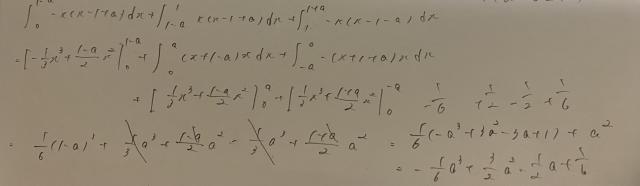 ∫_0^{1-a} -x(x-1+a)dx + ∫_{1-a}^1 x(x-1+a)dx + ∫_1^{1+a} -x(x-1-a)dx
= [-1/3 x^3 + (1-a)/2 x^2]_0^{1-a} + ∫_0^a (x+1-a)x dx + ∫_{-a}^0 -(x+1+a)x dx
+ [1/3 x^3 + (1-a)/2 x^2]_0^a + [1/3 x^3 + (1+a)/2 x^2]_0^{-a} -1/6 +1/2 -1/2 +1/6
= 1/6 (1-a)^3 + 1/3 a^3 + (1-a)/2 a^2 - 1/3 a^3 + (1+a)/2 a^2 = 1/6 (-a^3+3a^2-3a+1) + a^2
= -1/6 a^3 + 3/2 a^2 - 1/2 a + 1/6